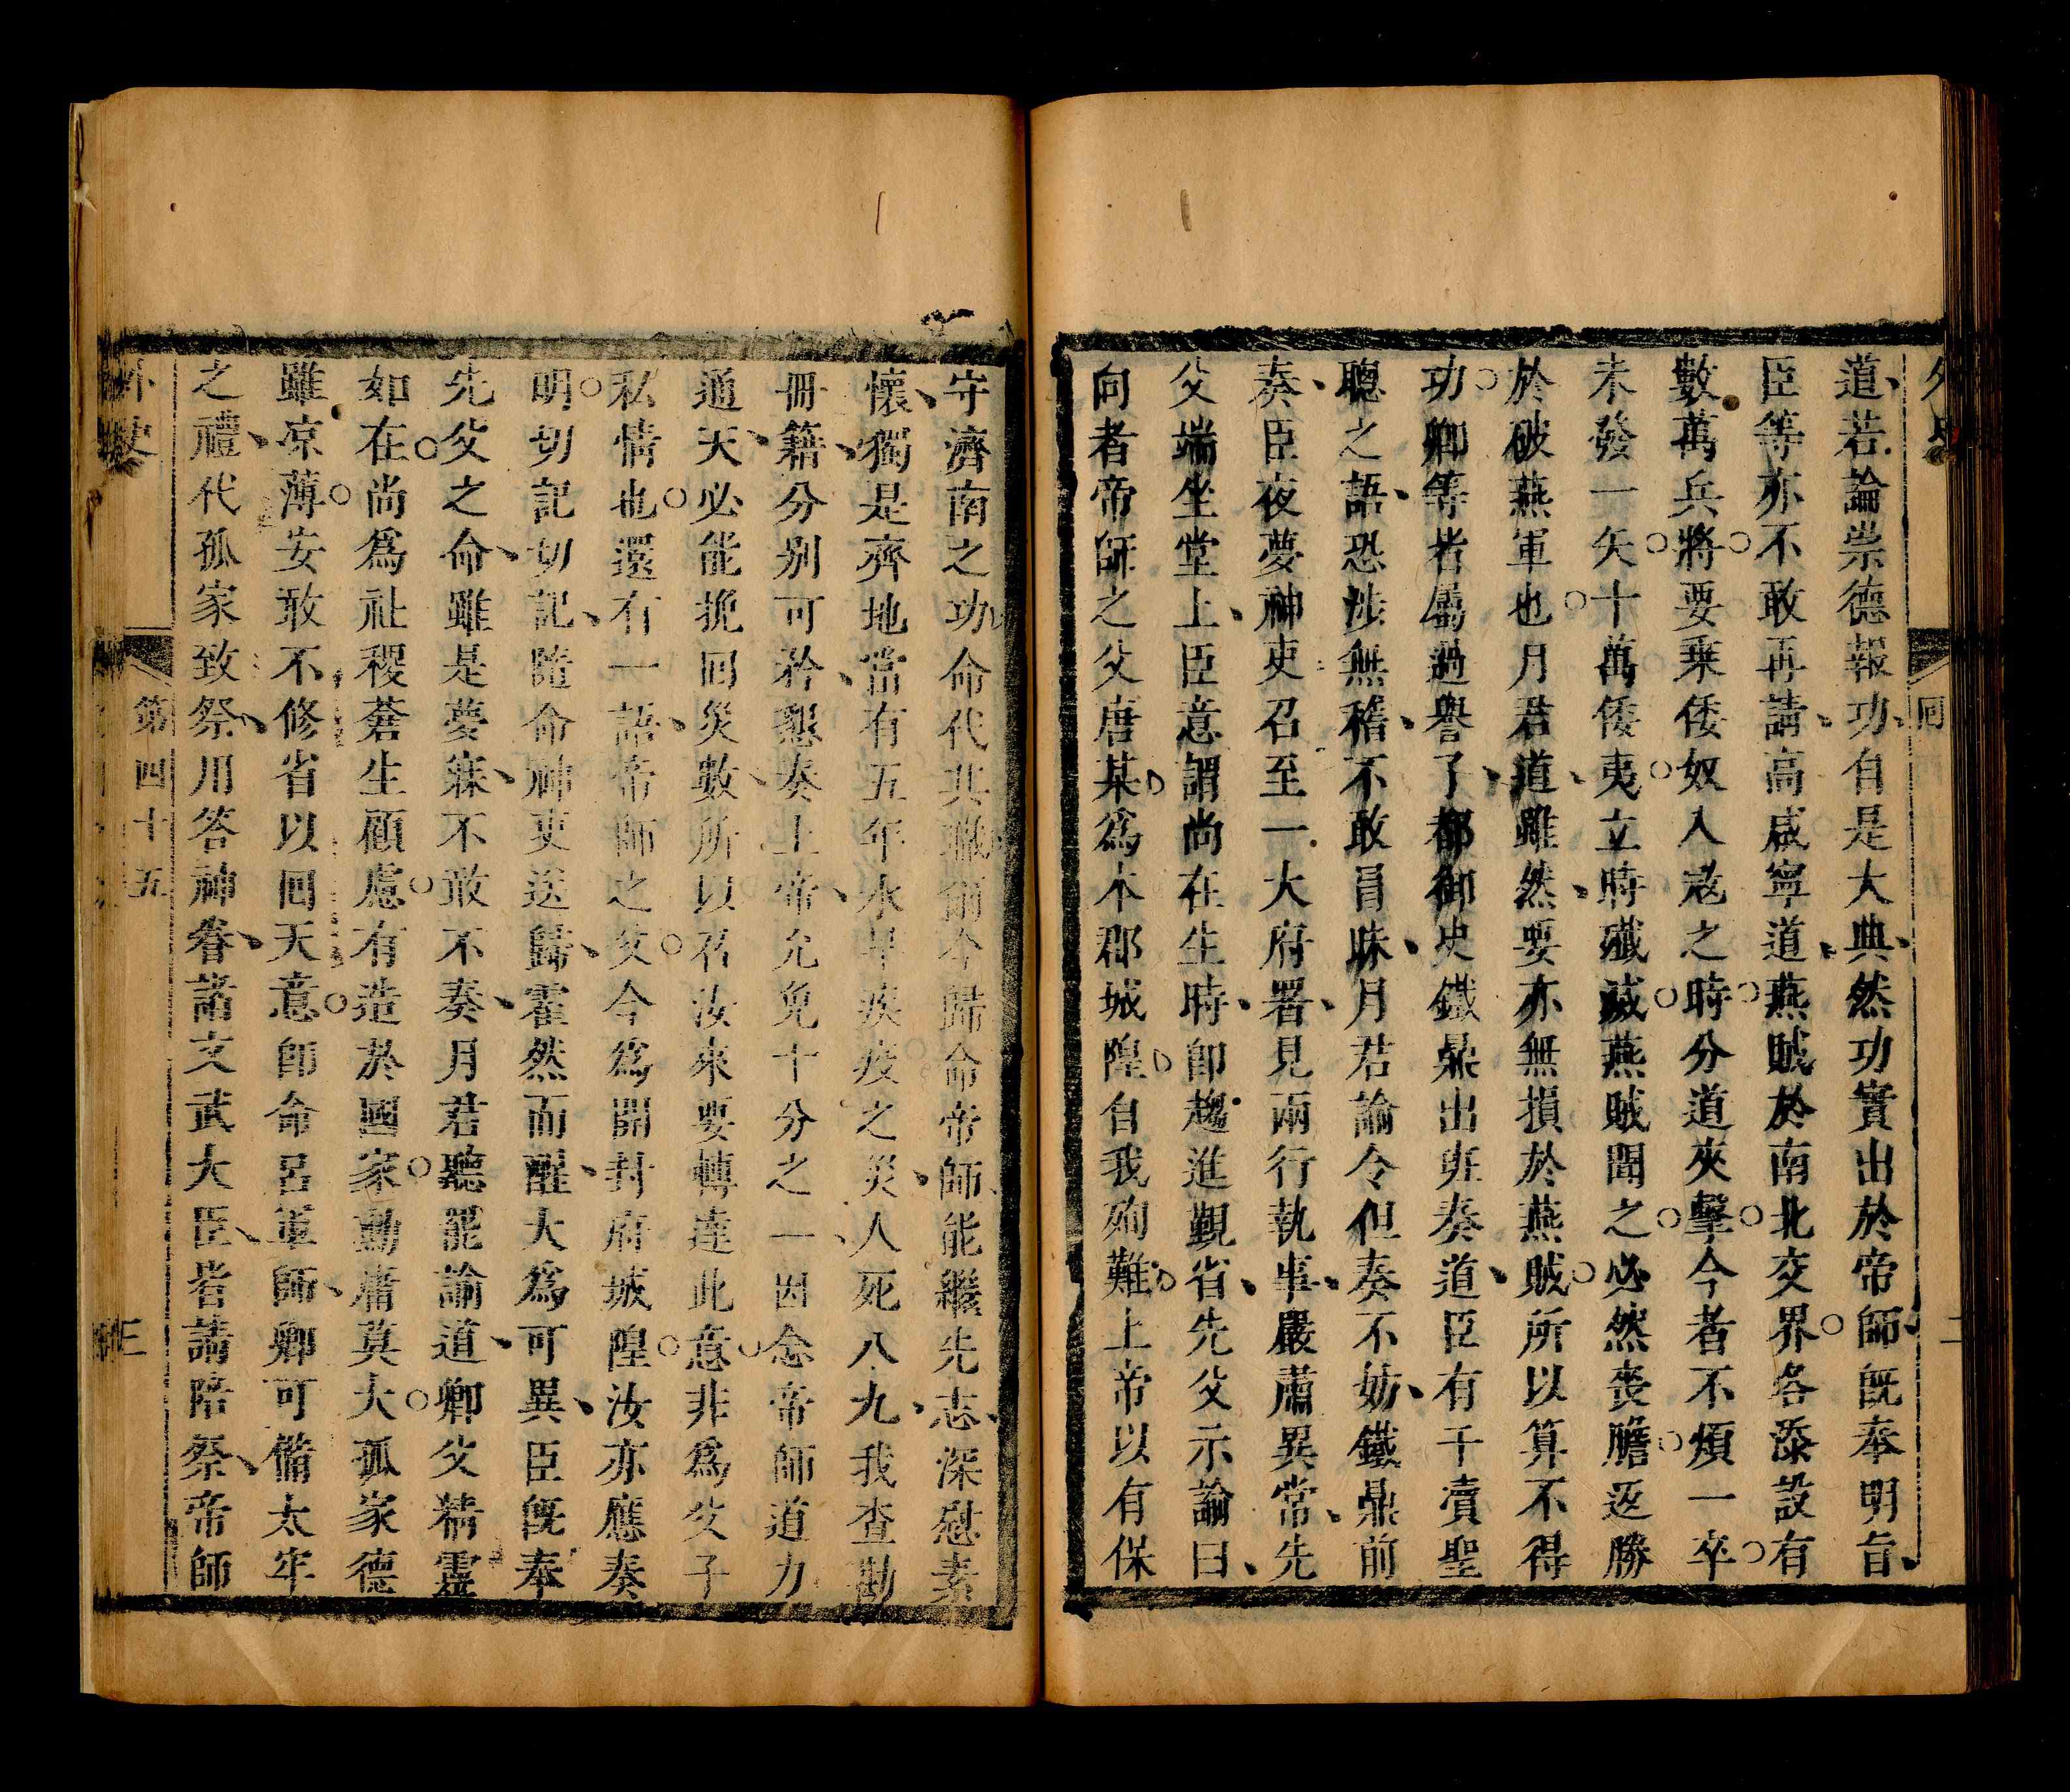 道若論崇德報功自是大典然功實出於帝師既奉明旨
臣等亦不敢再請高咸寧道燕賊於南北交界各添設有
數萬兵將要乘倭奴入寇之時分道夾擊今者不煩一卒
未發一矢十萬倭夷立時殲滅燕賊聞之必然喪膽返勝
於破燕軍也月君道雖然要亦無損於燕賊所以算不得
功卿等皆屬過譽了都御史鐵鼎出班奏道臣有干瀆聖
聰之語恐涉無稽不敢冒昧月君諭令但奏不妨鐵鼎前
奏臣夜夢神吏召至一大府署見兩行執事嚴肅異常先
父端坐堂上臣意謂尚在生時卽趨進覲省先父示諭曰
向者帝師之父唐某爲本郡城隍自我殉難上帝以有保
守濟南之功命代其職爾今歸命帝師能繼先志深慰素
懷獨是齊地當有五年水旱疾疫之災人死八九我查勘
冊籍分别可矜懇奏上帝允免十分之一因念帝師道力
通天必能挽回災數所以召汝來要轉達此意非爲父子
私情也還有一語帝師之父今爲開封府城隍汝亦應奏
明切記切記隨命神吏送歸霍然而醒大爲可異臣既奉
先父之命雖是夢寐不敢不奏月君聽罷諭道卿父精靈
如在尚爲社稷蒼生顧慮有造於國家勳庸莫大孤家德
雖凉薄安敢不修省以回天意卽命呂軍師卿可備太牢
之禮代孤家致祭用答神眷諸文武大臣皆請陪祭帝師
外史
第四十五
三